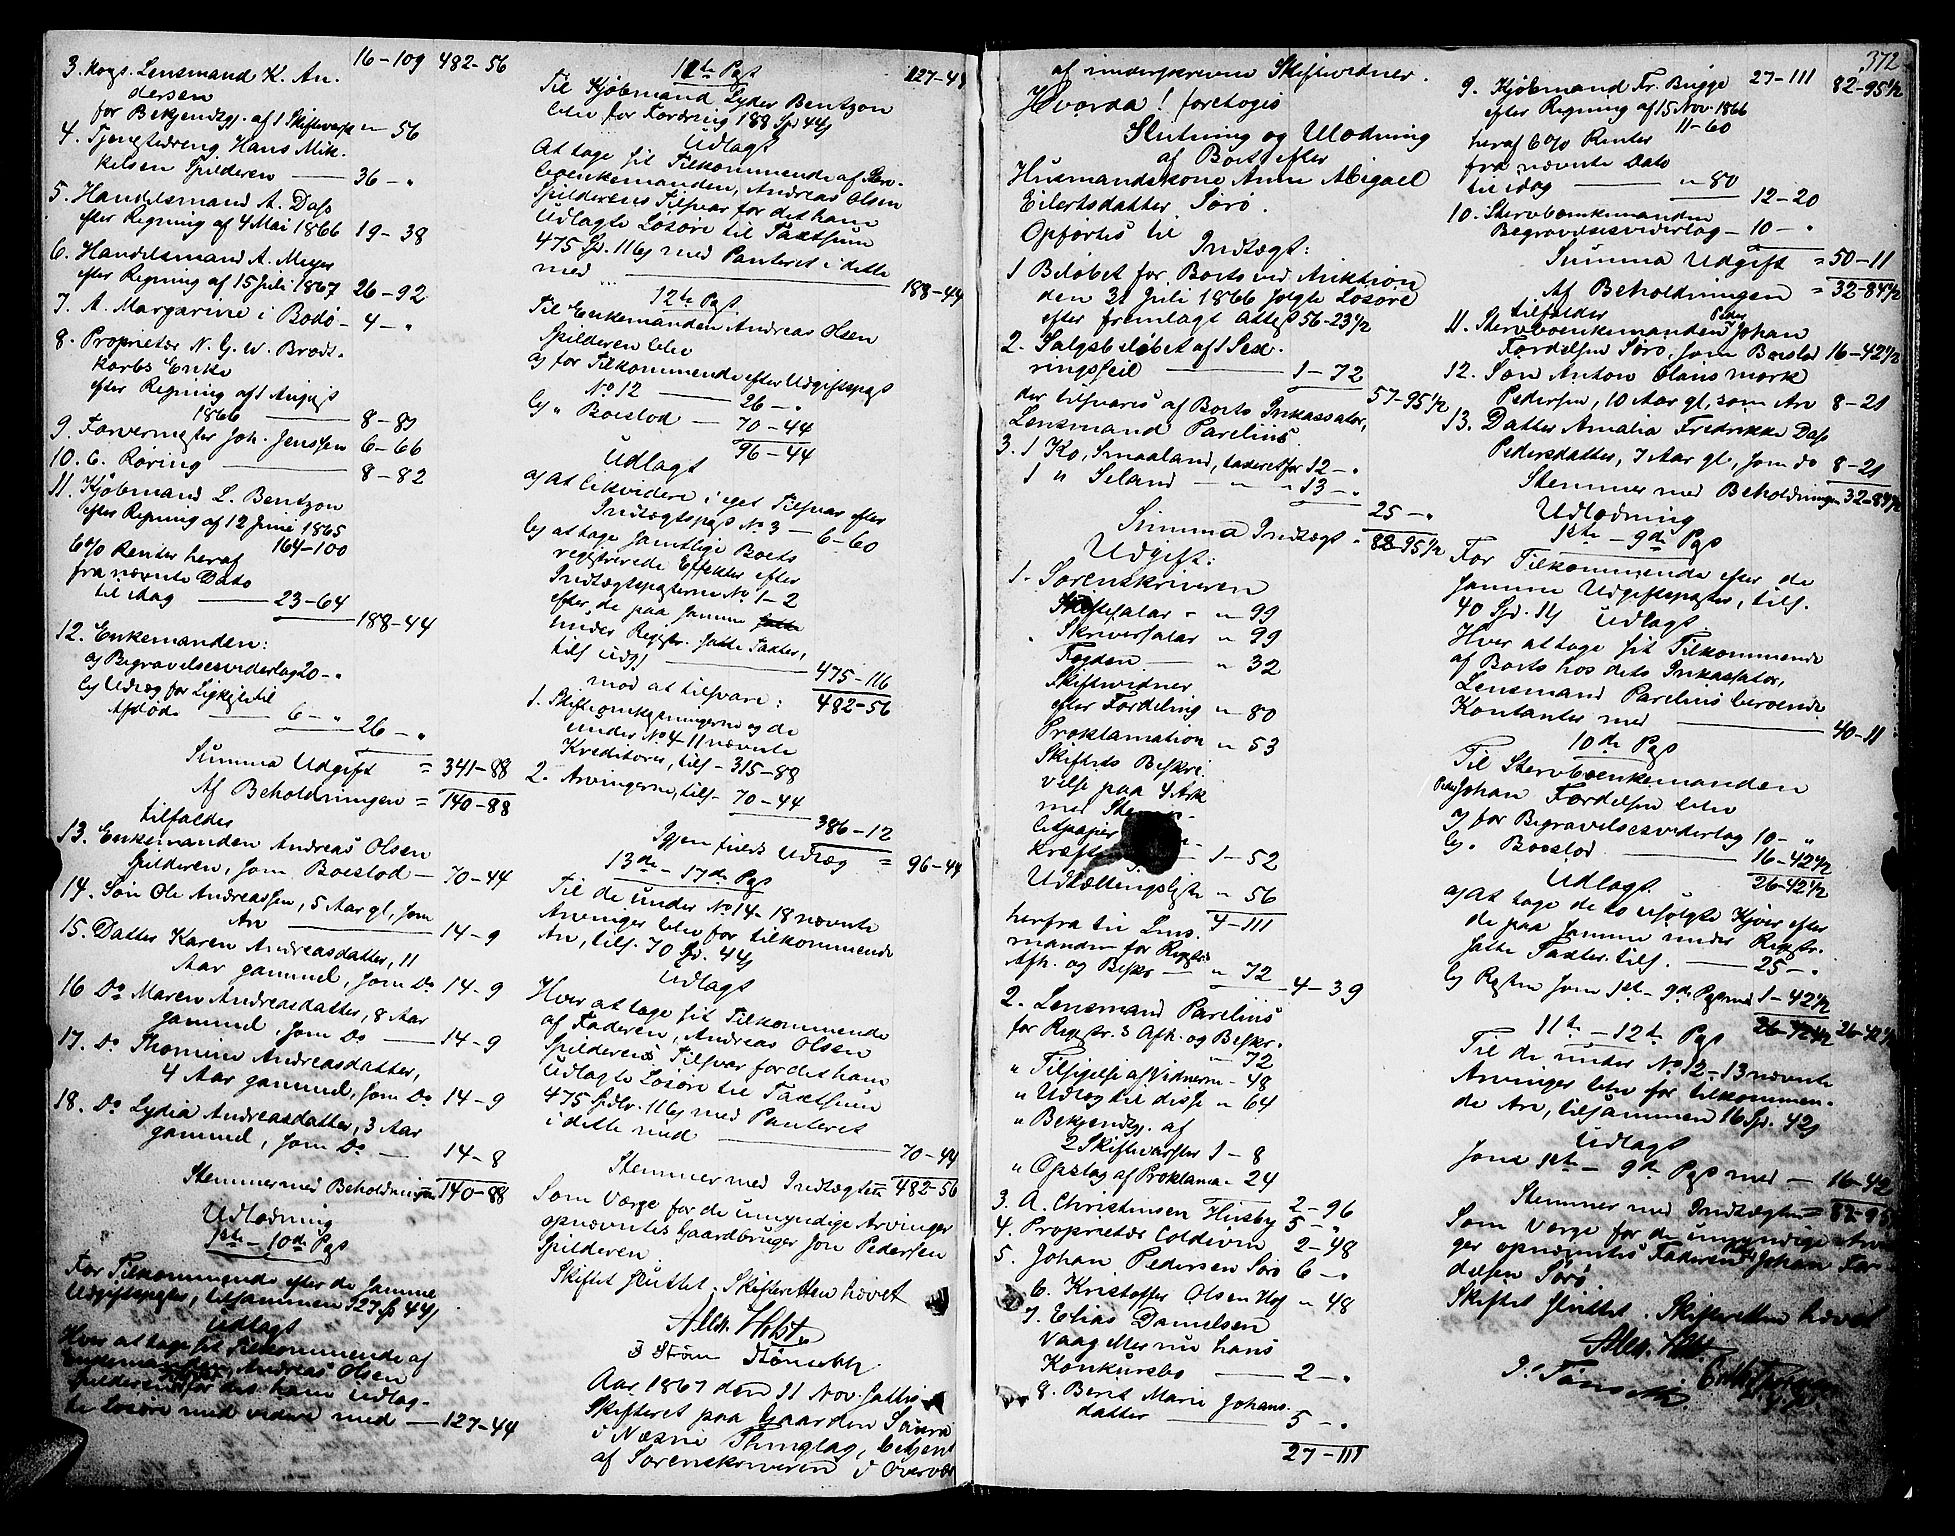 16-109 482-56
3. Kngs. Lensmand K. An-
dersen
for Bekjendtgj. af 1 Skiftevarsl " 56
4. Tjenestedreng Hans Mik-
kelsen Spilderen — 36 - "
5. Handelsmand A. Dass
efter Regning af 4 Mai 1866 19-38
6. Handelsmand A. Meyer
efter Regning af 15 Juli 1867 26-92
7. A. Margarine i Bodø - 4 - "
8. Proprietær N. G. W. Brodt-
korbs Enke
efter Regning af 1 August
1866 — 8-89
9. Farvermester Joh. Jenssen 6-66
10. C. Roring — 8-82
11. Kjøbmand L. Bentzon
efter Regning af 12 Juni 1865
164-100
6% Renter heraf
fra nævnte Dato
til idag — 23-64
188-44
12. Enkemanden:
a) Begravelsesvederlag 20 - "
b) Udlæg for Ligkiste til
Afdøde — 6 - " 26 - "
Summa Udgift = 341-88
Af Beholdningen = 140-88
tilfalder
13. Enkemanden Andreas Olsen
Spilderen, som Boeslod — 70-44
14. Søn Ole Andreassen, 5 Aar gl, som
Arv — 14-9
15. Datter Karen Andreasdatter, 11
Aar gammel, som Do 14-9
16 Do Maren Andreasdatter, 8 Aar
gammel, som Do — 14-9
17. Do Thomine Andreasdatter,
4 Aar gammel, som Do 14-9
18. Do Lydia Andreasdatter, 3 Aar
gammel, som Do — 14-8
Stemmer med Beholdningen 140-88
Udlodning
1ste - 10de Pgs
For Tilkommende efter de samme
Udgiftspgter, tilsammen 127 ß 44 s
Udlagt
Hver at tage sit Tilkommende af
Enkemanden, Andreas Olsen
Spilderen for det ham Udlag-
te Løsøre med videre med — 127-44
11te Pgs 127-44
Til Kjøbmand Lyder Bentzon
blev for Fordring 188 Spd 44 s
Udlagt
At tage sit Tilkommende af Ster-
boenkemanden, Andreas Olsen
Spilderens Tilsvar for det ham
Udlagte Løsøre til Taxtsum
475 Sp. 116 s med Panteret i dette
med ... — 188-44
12te Pgs.
Til Enkemanden Andreas Olsen
Spilderen blev
a) for Tilkommende efter Udgiftspgs
No 12 — 26 - "
b) " Boeslod — 70-44
96-44
Udlagt
a) at likvidere i eget Tilsvar efter
Indtægtspgs No 3 — 6-60
b) at tage samtlige Boets
registrerede Effekter efter
Indtægtspgterne No 1-2
efter de paa samme
under Registr. satte Taxter,
tils Udgj — 475-116
mod at tilsvare: 482-56
1. Skifteomkostningerne og de
under No 4-11 nævnte
Kreditorer, tils - 315-88
2. Arvingerne, tils - 70-44
386-12
Igjen fuldt Udlæg = 96-44
13de - 17de Pgs
Til de under No 14-18 nævnte
Arvinger blev for tilkommende
Arv, tils. 70 Sp. 44 s
Udlagt
Hver at tage sit Tilkommende
af Faderen, Andreas Olsen
Spilderens Tilsvar for det ham
Udlagte Løsøre til Taxtsum
475 Spdlr. 116 s med Panteret
i dette med — 70-44
Stemmer med Indtægten = 482-56
Som Værge for de umyndige Arvinger
opnævntes Gaardbruger Jon Pedersen
Spilderen
Skiftet sluttet. Skifteretten hævet
Alex. Holst
Aar 1867 den 11 Nov. sattes
Skifteret paa Gaarden Søvra
i Næsne Thinglag, betjent
af Sorenskriveren i Overvær
372
af underskrevne Skiftevidner.
Hvorda! foretoges
Slutning og Ulodning
af Boet efter
Husmandskone Anne Abigael
Eilertsdatter Sørø.
Opførtes til
Indtægt:
1 Beløbet for Boets ved Auktion
den 31 Juli 1866 solgte Løsøre
efter fremlagt Attest 56-23 1/2
2. Salgsbeløbet af 1 Sex-
ringsseil — 1-72
57-95 1/2
der tilsvares af Boets Inkassator,
Lensmand Parelius.
3. 1 Ko, Smaaland, taxeret for 12 - "
1 " Seland — " — " 13 - "
25 - "
Summa Indtægt = 82-95 1/2
Udgift:
1. Sorenskriveren
Skiftesalær - " 99
Skriversalær " 99
Fogden — " 32
Skiftevidner
efter Fordeling " 80
Proklamation " 53
Skiftets Beskri-
velse paa 4 Ark
med Stem-
letpapir
kræft — 1-52
Udlællingsliste " 56
4-111
herfra til Lens-
manden for Registr
Afh. og Beskr — " 72
4-39
2. Lensmand Parelius
for Registr. 3 Afh. og Beskr.
" 72
" Tilsigelse af Vidnerne - 48
" Udlæg til disse " 64
" Bekjendtgj. af
2 Skiftevarsler 1-8
" Opslag af Proklama - 24
2-96
3. A. Christensen Husby 5 - "
4. Proprietær Coldevin 2-48
5. Johan Pedersen Sørø 6 - "
6. Kristoffer Olsen Hof " 48
7. Elias Danielsen
Vaag Mer nu hans
Konkursbo — 2 - "
8. Berit Marie Johans-
datter — 5 - "
27-111
27-111
9. Kjøbmand Fr. Brygge 82-95 1/2
efter Regning af 15 Nov. 1866
11-60
heraf 6% Renter
fra nævnte Dato
til idag — " 80
12-20
10. Stervboenkemanden
Begravelsesvederlag — 10 - "
Summa Udgift = 50-11
Af Beholdningen = 32-84 1/2
tilfalder
11. Stervboenkemanden Peder Johan
Fordelsen Sørø, som Boeslod 16-42 1/2
12. Søn Anton Olaus Mørk
Pedersen, 10 Aar gl, som Arv 8-21
13. Datter Amalia Fredrikke Dass
Pedersdatter, 7 Aar gl, som do 8-21
Stemmer med Beholdningen 32-84 1/2
Udlodning
1ste - 9de Pgs
For Tilkommende efter de
samme Udgiftspgter, tils.
40 Spd. 11 s Udlagt
Hver at tage sit Tilkommende
af Boets hos dets Inkassator,
Lensmand Parelius beroende
Kontanter med — 40-11
10de Pgs
Til Stervboenkemanden
Peder Johan Fordelsen blev
a) for Begravelsesvederlag 10 - "
b) " Boeslod — 16-42 1/2
26-42 1/2
Udlagt
a) At tage de to usolgte Kjør efter
de paa samme under Registr.
satte Taxter. tils. — 25 - "
b) Resten som 1ste - 9de Pgs med 1-42 1/2
26-42 1/2 26-42 1/2
11te - 12te Pgs
Til de under No 12-13 nævnte
Arvinger blev for tilkommen-
de Arv, tilsammen 16 Sp. 42 s
Udlagt
Som 1ste - 9de Pgs med — 16-42
Stemmer med Indtægten = 82-95 1/2
Som Værge for de umyndige Arvin
ger opnævntes Faderen Peder Johan For-
delsen Sørø.
Skiftet sluttet. Skifteretten hævet
Alex. Holst